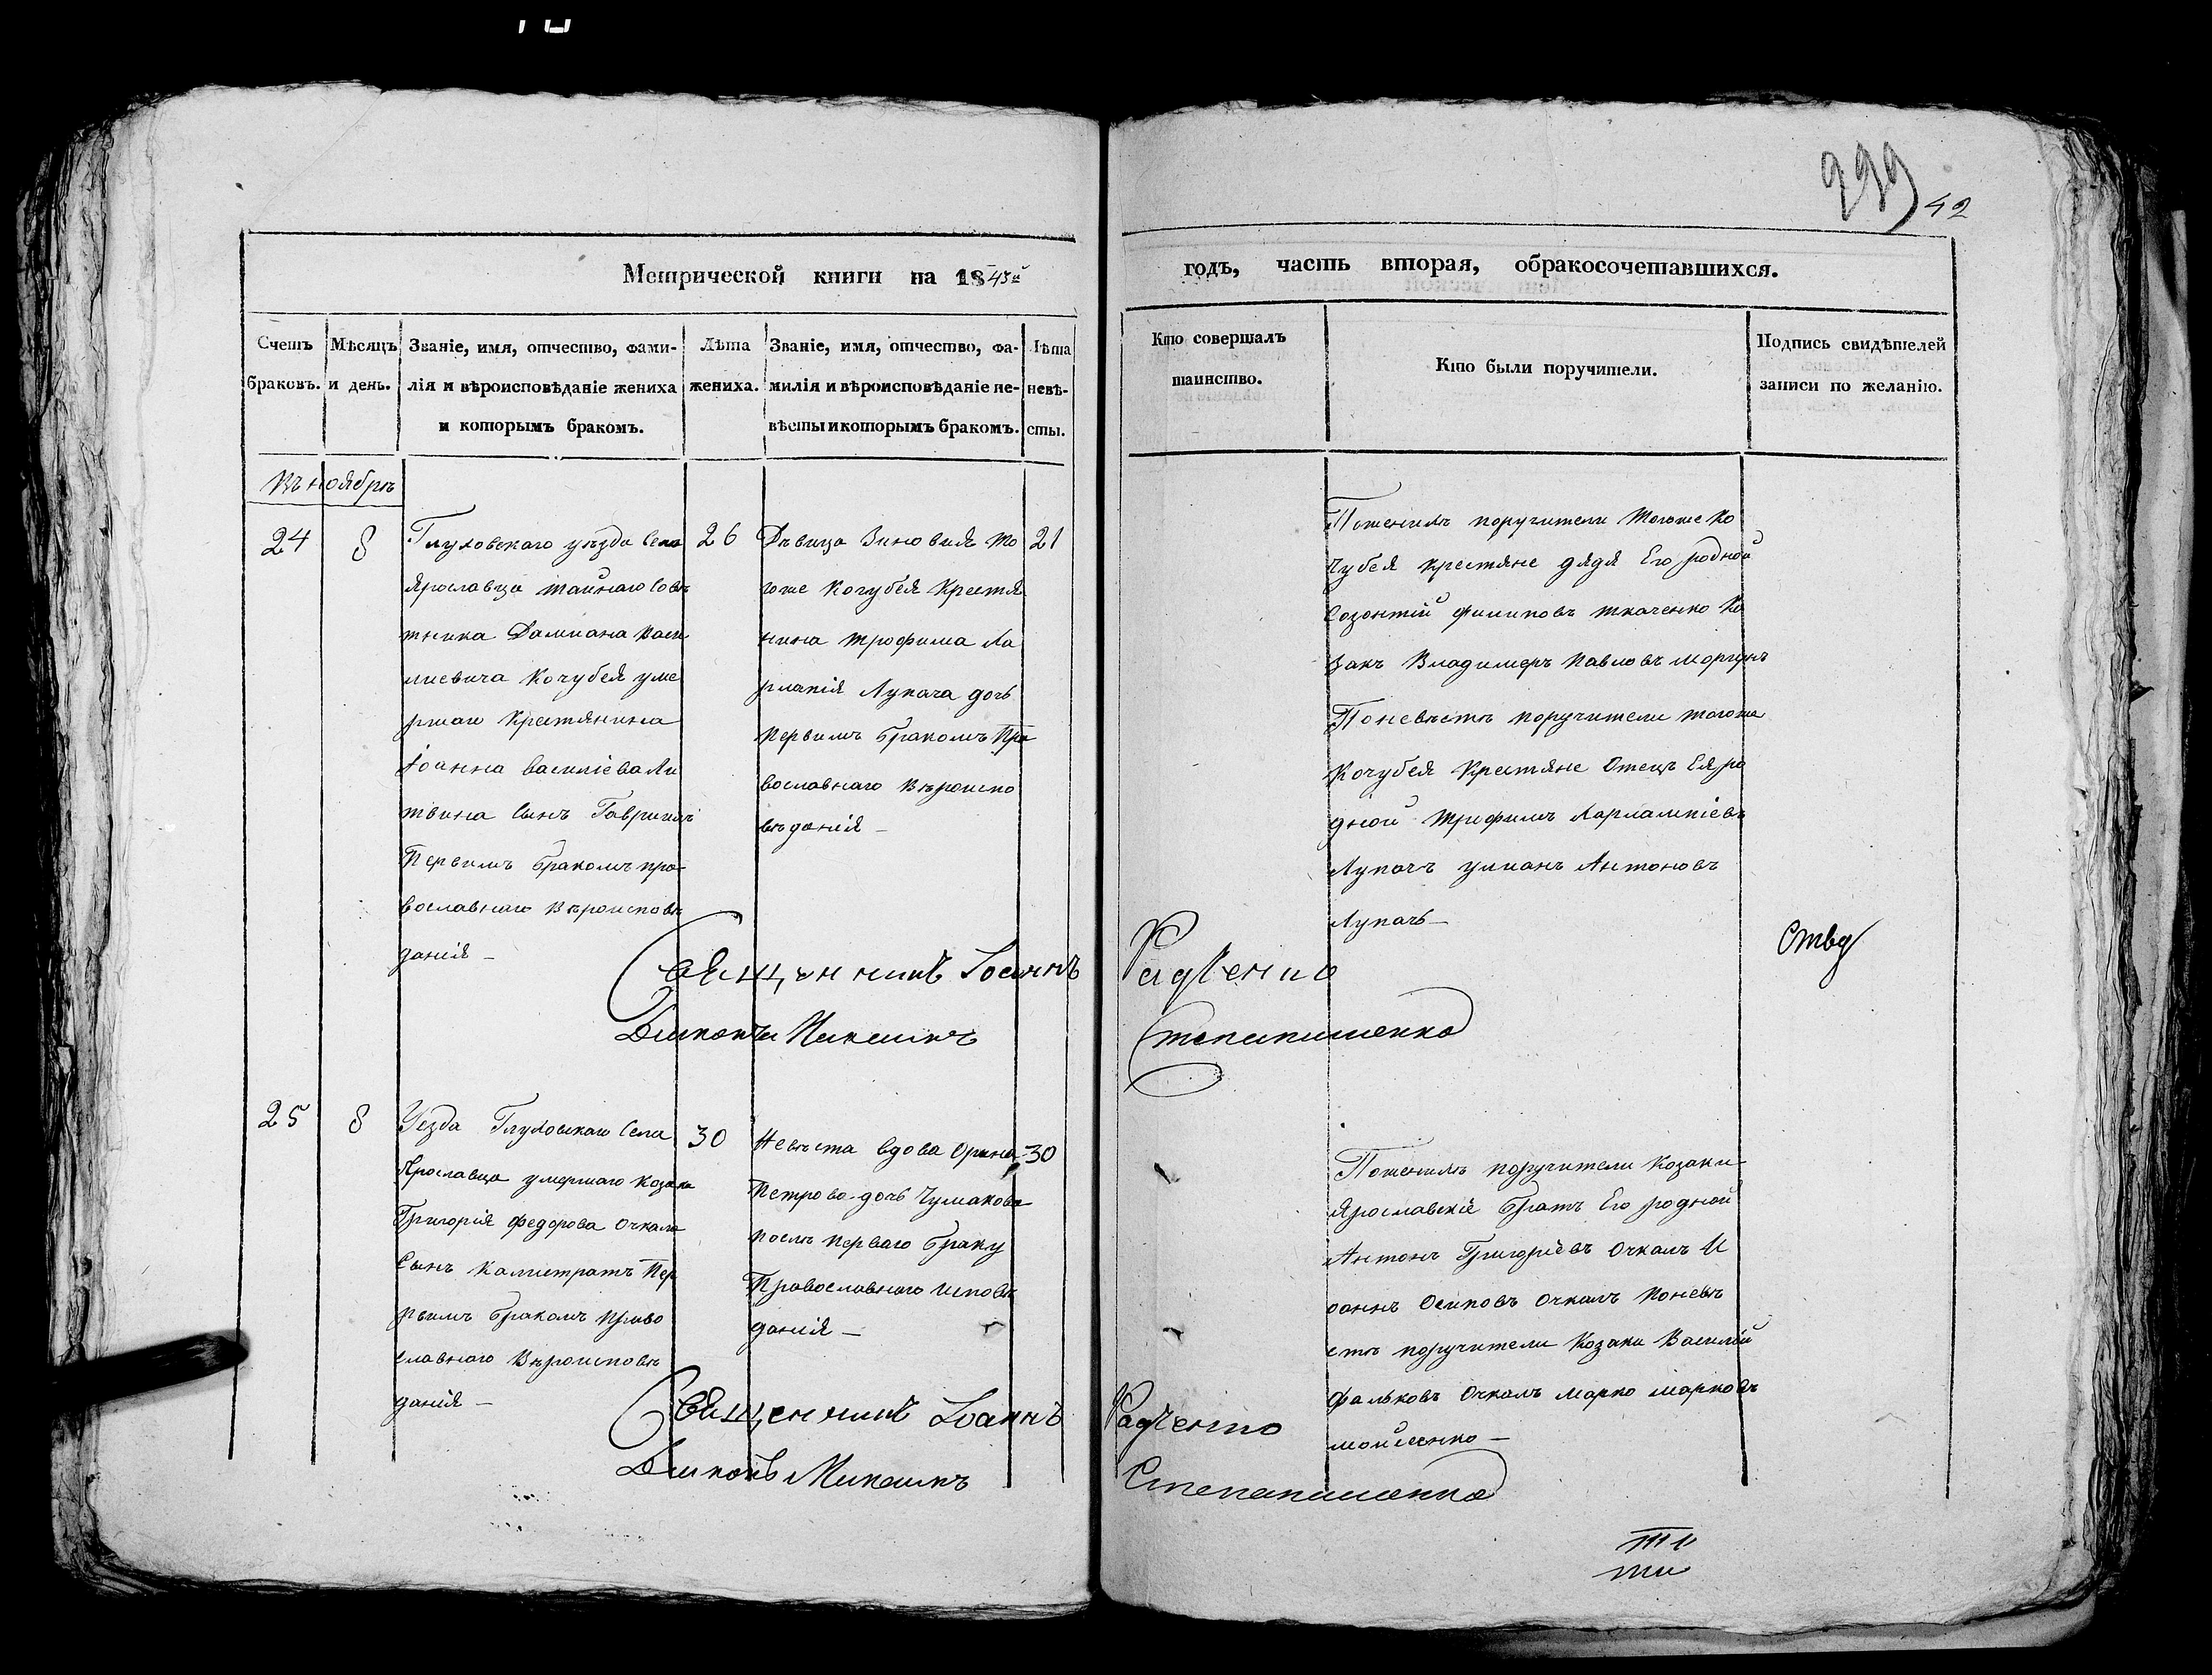 299 42
Метрической книги на 1845й
годъ, часть вторая, обракосочетавшихся.
Счетъ браковъ.
Мѣсяцъ и день.
Званіе, имя, отчество, фами-
лія и вѣроисповѣданіе жениха
и которымъ бракомъ.
Лѣта жениха.
Званіе, имя, отчество, фа-
милія и вѣроисповѣданіе не-
вѣсты и которымъ бракомъ.
Лѣта невѣ-
сты.
Кто совершалъ
таинство.
Кто были поручители.
Подпись свидѣтелей
записи по желанію.
въ ноябрѣ
24
8
Глуховскаго уѣзда села
Ярославца тайнаго совѣ
тника Дамиана Васи
лиевича Кочубея уме
ршаго крестянина
Іоанна Василіева Ли
твина сынъ Гавриилъ
Первимъ бракомъ пра-
вославнаго вѣроисповѣ
данія —
26
Дѣвица Зиновия то
гоже Кочубея крестя
нина Трофима Ха
рлапія Лупача дочь
первимъ бракомъ пра
вославнаго вѣроиспо
вѣданія —
21
Поженихѣ поручители тогоже Ко
чубея крестяне дядя Его родной
Созонтій Филиповъ Ткаченко Ко
закъ Владимеръ Павловъ Моргунъ
Поневѣстѣ поручители тогоже
Кочубея крестяне Отецъ Ея ро
дной Трофимъ Харлампіевъ
Лупачъ улианъ Антоновъ
Лупачь —
Священникъ Іоаннъ Радченко
Диаконъ Михаилъ Степаниченко
Ству
25
8
Уезда Глуховскаго села
Ярославца умершаго козака
Григорія Федорова Очкала
Сынъ Калистратъ Пер
рвимъ бракомъ право
славнаго вѣроисповѣ
данія —
30
Невѣста вдова Орина
Петрова дочь Чумакова
послѣ перваго браку
Православнаго исповѣ
данія —
30
Поженихѣ поручители козаки
Ярославскіе братъ Его родной
Антонъ Григоріевъ Очкалъ И
оаннъ Осиповъ Очкалъ Поневѣ
стѣ поручители Козаки Василій
Фальковъ Очкалъ Марко Марковъ
Мойсѣенко —
Священникъ Іоаннъ Радченко
Диаконъ Михаилъ Степаниченко